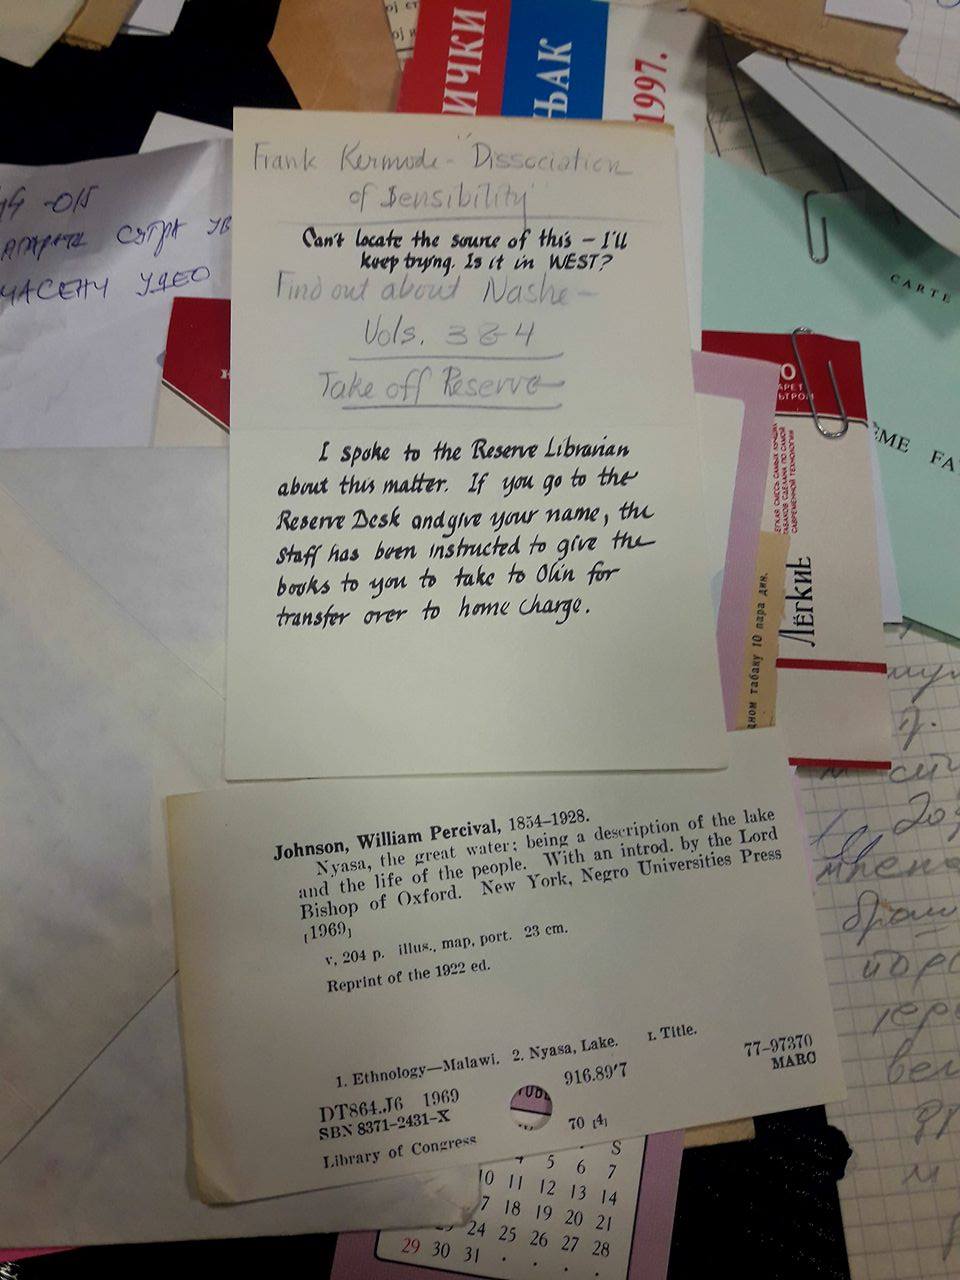 ИЧКИ
ЊАК
1997.
Frank Kermode - "Dissociation
of Sensibility"
Can't locate the source of this – I'll
keep trying. Is it in WEST?
Find out about Nashe –
Vols. 3 & 4
Take off Reserve
I spoke to the Reserve Librarian
about this matter. If you go to the
Reserve Desk and give your name, the
staff has been instructed to give the
books to you to take to Olin for
transfer over to home charge.
CARTE
ЛЁГКИЕ
ЕГКАЯ СМЕСЬ САМЫХ ЛУЧШИХ
ТАБАКОВ СДЕЛАНА ПО САМОЙ
СОВРЕМЕННОЙ ТЕХНОЛОГИИ
ÈME FA
дном табаку 10 пара дин.
Johnson, William Percival, 1854–1928.
Nyasa, the great water; being a description of the lake
and the life of the people. With an introd. by the Lord
Bishop of Oxford. New York, Negro Universities Press
[1969]
v, 204 p. illus., map, port. 23 cm.
Reprint of the 1922 ed.
1. Ethnology—Malawi. 2. Nyasa, Lake. I. Title.
DT864.J6 1969
916.89'7
77–97370
SBN 8371–2431–X
MARC
Library of Congress
70 [4]
S
4 5 6 7
10 11 12 13 14
7 18 19 20 21
23 24 25 26 27 28
29 30 31